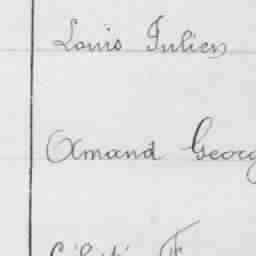 Louis Julien
Amand Georg